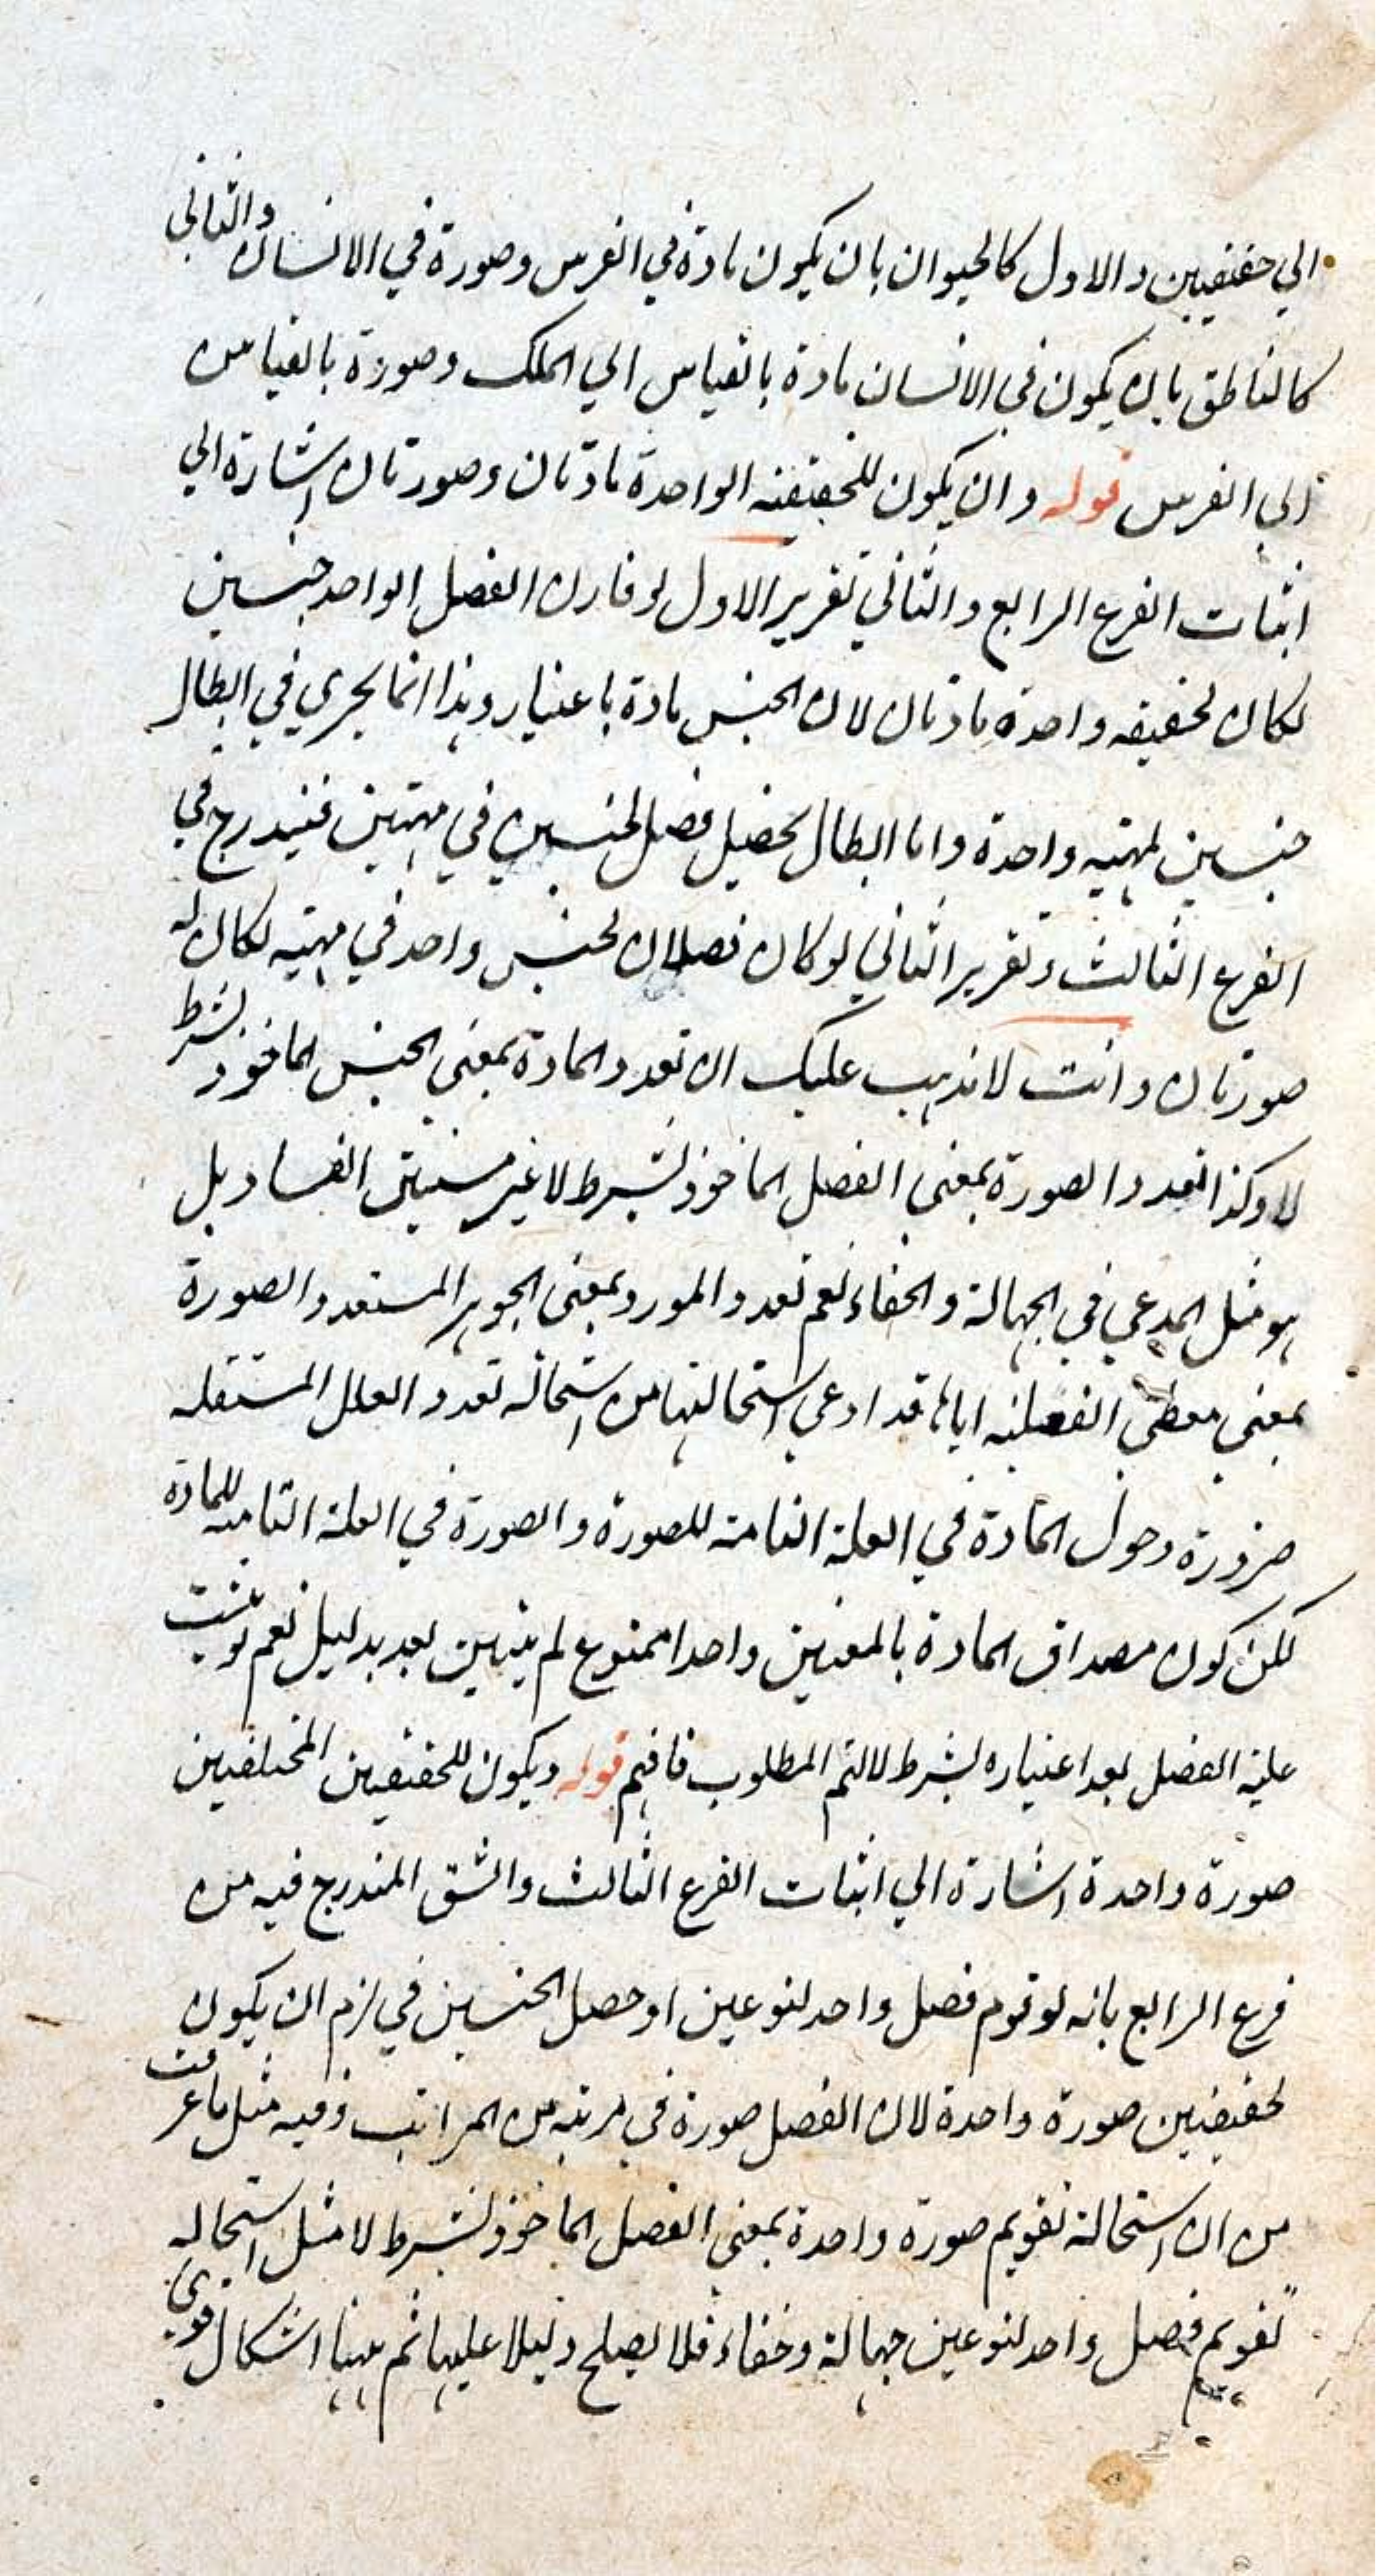 الي حقيقيين والاول كالحيوان بان يكون مادة في الفرس وصورة في الانسان والثاني
كالناطق بان يكون في الانسان مادة بالقياس الي الملك وصورة بالقياس
الي الفرس قوله وان يكون للحقيقه الواحدة مادتان وصورتان اشارة الي
اثبات الفرع الرابع والثاني تقرير الاول لو قارن الفصل الواحد جنسين
لكان لحقيقه واحدة مادتان لان الجنس مادة باعتبار وهذا انما يجري في ابطال
جنسين لمهيه واحدة واما ابطال تحصيل فصل لجنسين في مهيتين فيندرج في
الفرع الثالث وتقرير الثاني لو كان فصلان لجنس واحد في مهيه لكان له
صورتان وانت لا تذهب عليك ان تعدد المادة بمعني الجنس الماخوذ بشرط
لا وكذا تعدد الصورة بمعني الفصل الماخوذ بشرط لا غير مستبين الفساد بل
هو مثل المدعي في الجهالة والخفاء نعم تعدد المورد بمعني الجوهر المستعد والصورة
بمعني معطي الفعليه اياها قد ادعي استحالتها من استحاله تعدد العلل المستقله
ضرورة دخول المادة في العلة التامة للصورة والصورة في العلة التامه للمادة
لكن كون مصداق المادة بالمعنيين واحدا ممنوع لم يتبين بعد بدليل نعم لو ثبت
علية الفصل بعد اعتباره بشرط لا لتم المطلوب فافهم قوله ويكون للحقيقيين المختلفيين
صورة واحدة اشارة الي اثبات الفرع الثالث والشق المندرج فيه من
فرع الرابع بانه لو قوم فصل واحد لنوعين او حصل الجنسين في لزم ان يكون
لحقيقيين صورة واحدة لان الفصل صورة في مرتبه من المراتب وفيه مثل ما عرفت
من ان استحالة تقويم صورة واحدة بمعني الفصل الماخوذ بشرط لا مثل استحاله
تقويم فصل واحد لنوعين جهالة وخفاء فلا يصلح دليلا عليها ثم ههنا اشكال قوي